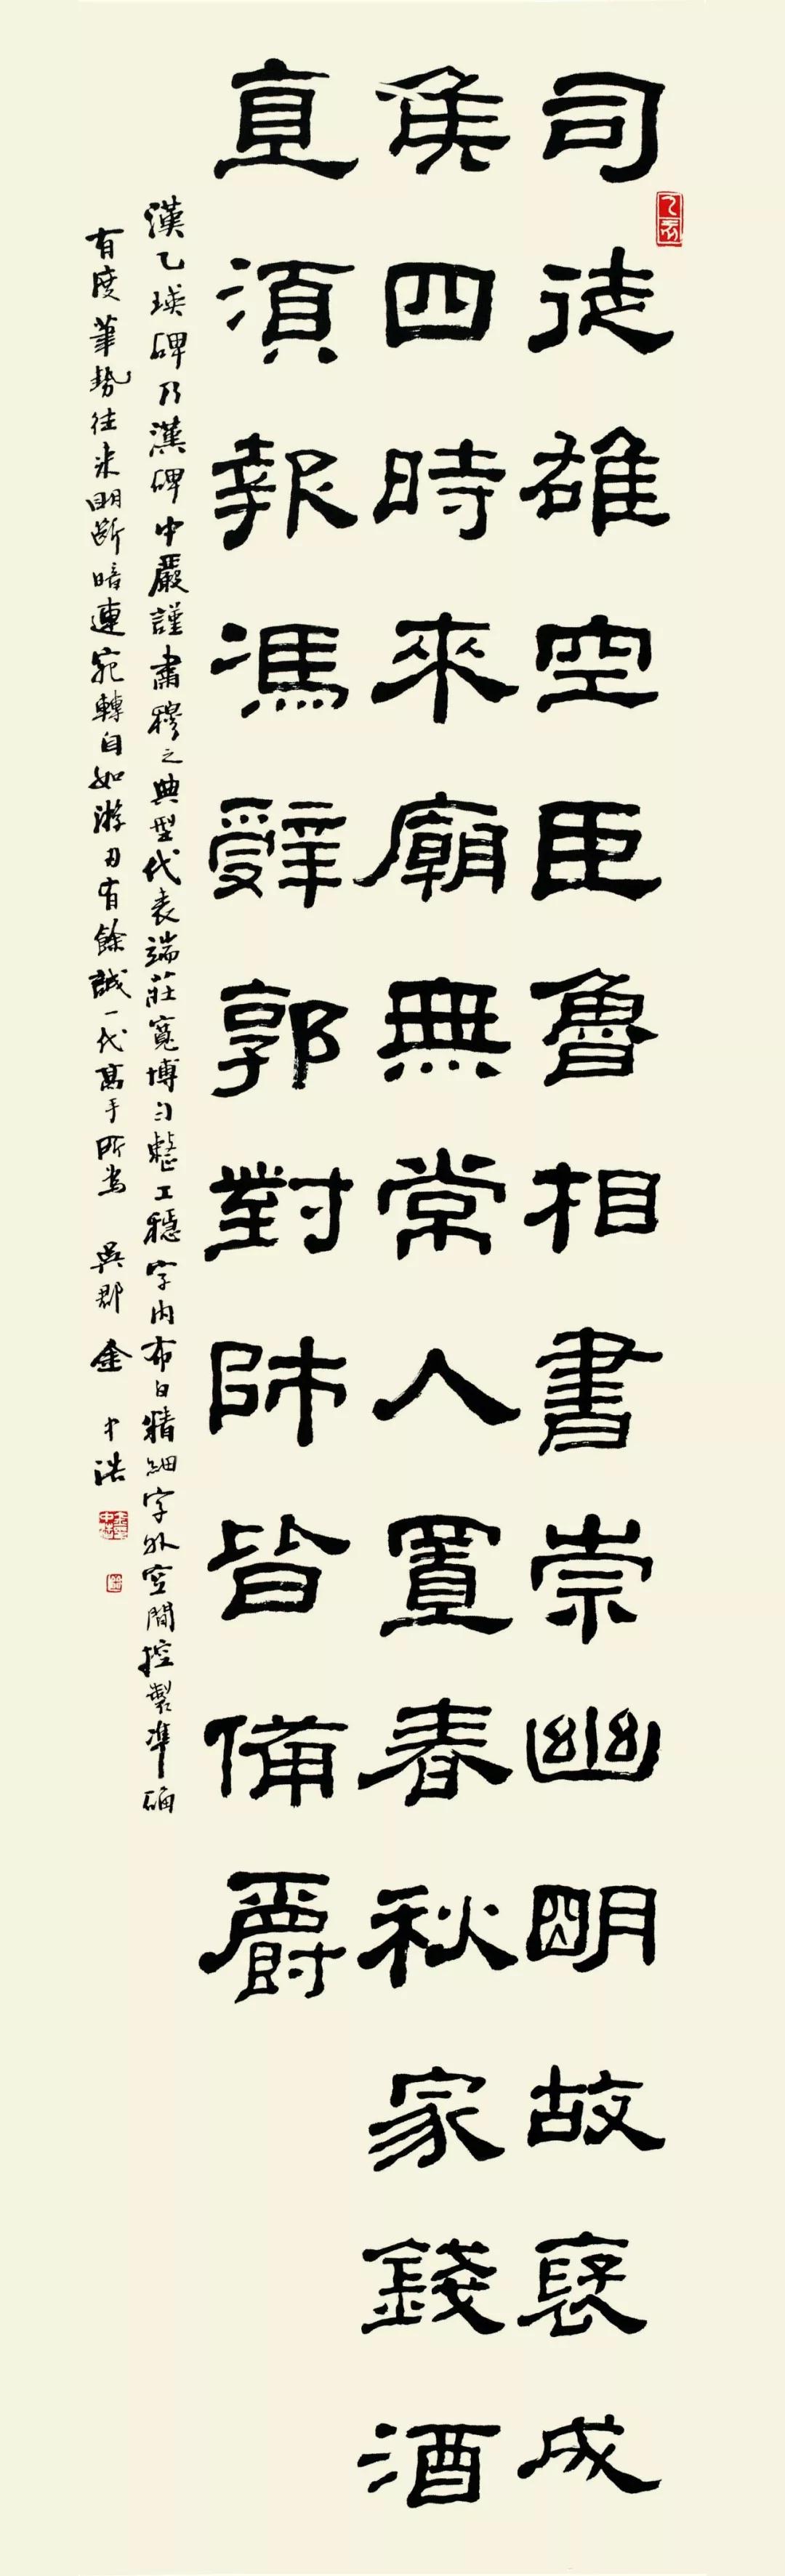 司徒雄空臣魯相書崇幽明故褒成
侯四時來廟無常人置春秋家錢酒
直須報馮辭郭對師皆備爵
漢乙瑛碑乃漢碑中嚴謹肅穆之典型代表端莊寬博勻整工穩字内布白精細字外空間控製準确
有度筆勢往来明斷暗連宛轉自如游刃有餘誠一代高手所為 吳郡金中浩